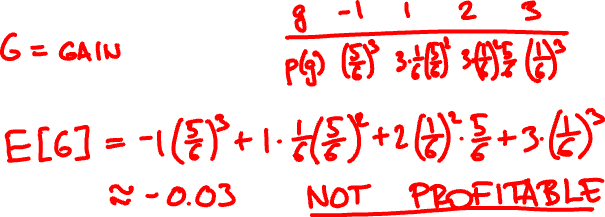 g -1 1 2 3
G = GAIN
p(g) (5/6)³ 3·1/6(5/6)² 3(1/6)²5/6 (1/6)³
E[G] = -1(5/6)³ + 1·1/6(5/6)² + 2(1/6)²·5/6 + 3·(1/6)³
≈ -0.03 NOT PROFITABLE